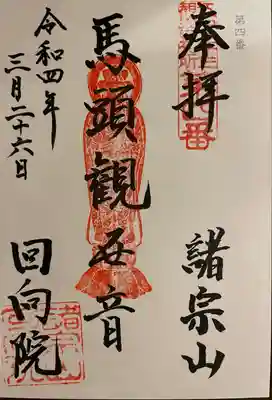 第四番
奉拝
諸宗山
馬頭観世音
令和四年
三月二十六日
回向院